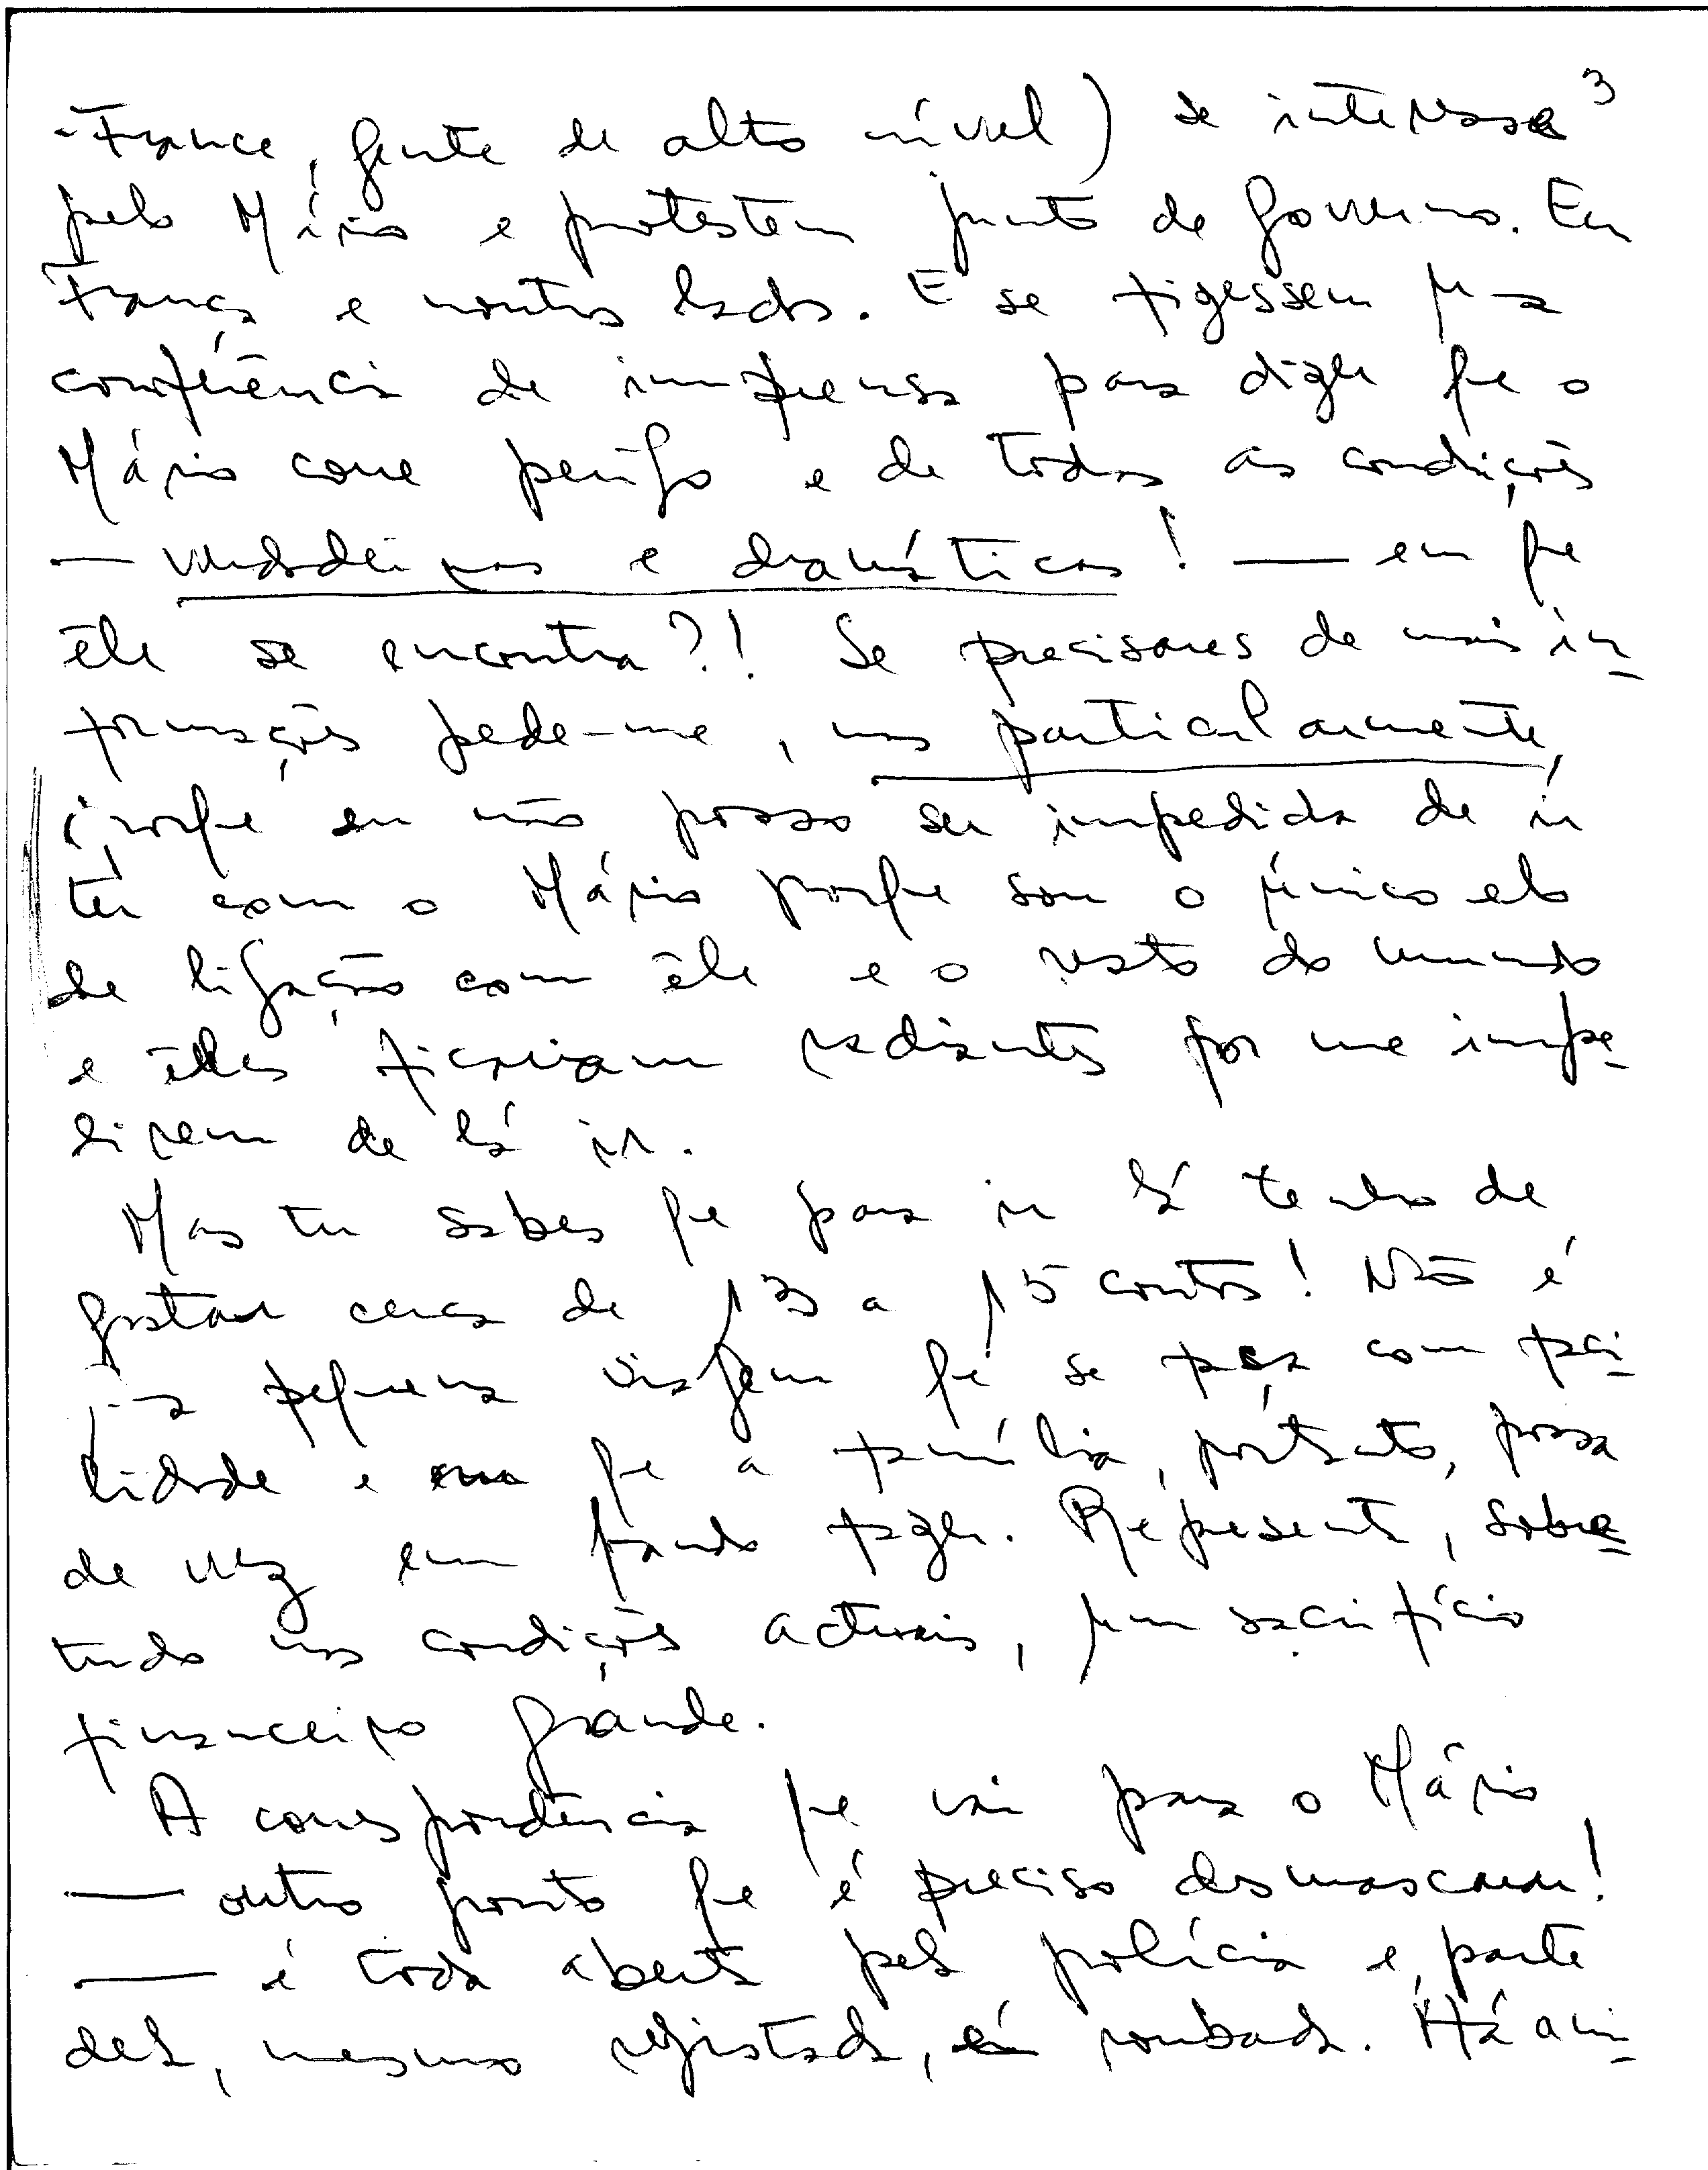 3
-France, gente de alto nível) se interesse
pelo Mário e protestem junto do Governo. Em
França e noutros lados. E se fizessem uma
conferência de imprensa para dizer que o
Mário corre perigo e de todas as condições
— verdadeiras e dramáticas! — em que
êle se encontra?! Se precisares de mais in-
formações pede-me, mas particularmente,
porque eu não posso ser impedida de ir
ter com o Mário porque sou o único elo
de ligação com êle e o resto do mundo
e êles ficariam radiantes por me impe-
direm de lá ir.
Mas tu sabes que para ir lá tenho de
gastar cerca de 13 a 15 contos! Não é
uma pequena viagem que se faça com faci-
lidade e que a família, portanto, possa
de vez em quando fazer. Representa, sobre-
tudo nas condições actuais, um sacrifício
financeiro grande.
A correspondência que vai para o Mário
— outro ponto que é preciso desmascarar!
— é toda aberta pela polícia e, parte
dela, mesmo registada, é roubada. Há ain-